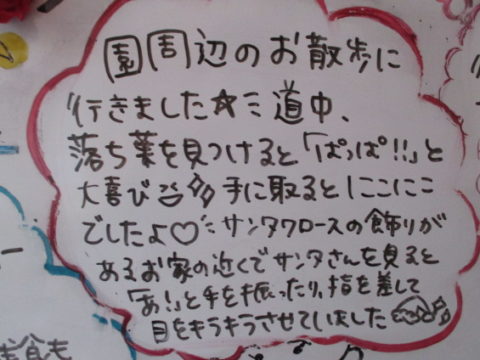 園周辺のお散歩に
行きました☆ミ道中、
落ち葉を見つけると「ぱっぱ!!」と
大喜び 手に取るとにこにこ
でしたよ♡ミサンタクロースの飾りが
あるお家の近くでサンタさんを見ると
「あ!」と手を振ったり、指を差して
目をキラキラさせていました
食も